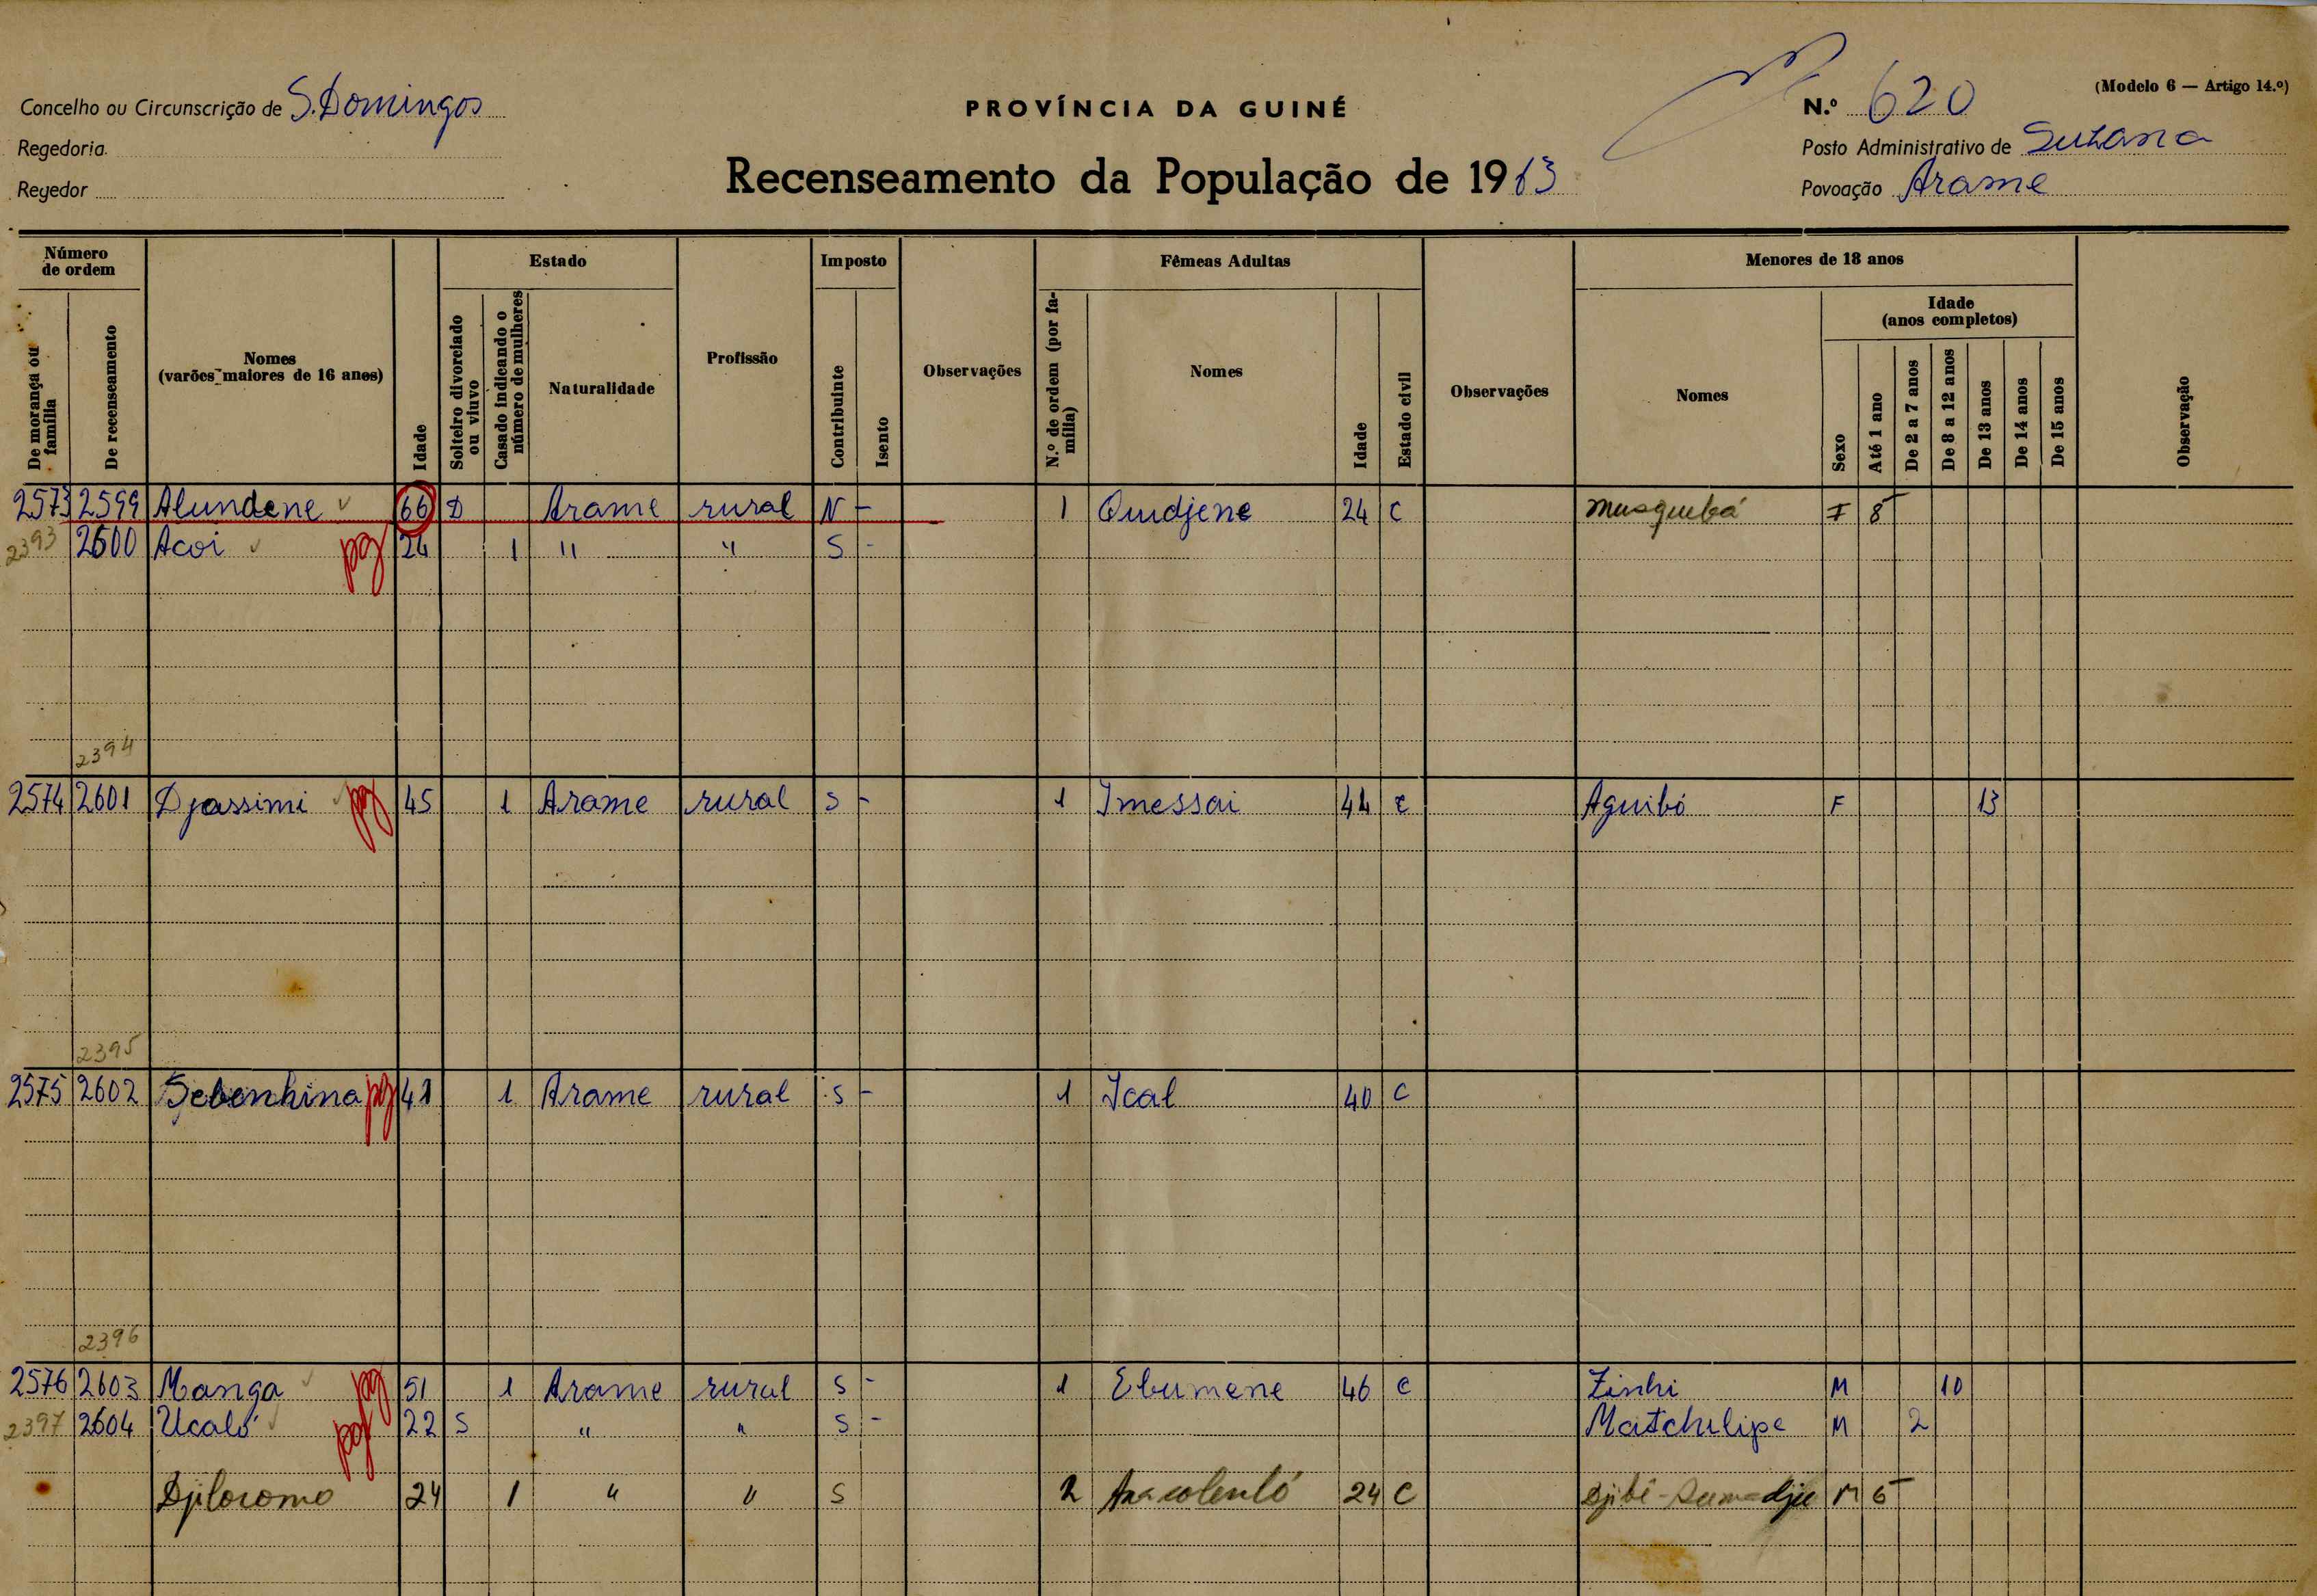 Concelho ou Circunscrição de S. Domingos
Regedoria
Regedor
PROVÍNCIA DA GUINÉ
Recenseamento da População de 1963
(Modelo 6 — Artigo 14.º)
N.º 620
Posto Administrativo de Suzana
Povoação Arame
Número de ordem
De morança ou família
De recenseamento
Nomes (varões maiores de 16 anos)
Idade
Estado
Solteiro divorciado ou viuvo
Casado indicando o número de mulheres
Naturalidade
Profissão
Imposto
Contribuinte
Isento
Observações
Fêmeas Adultas
N.º de ordem (por família)
Nomes
Idade
Estado civil
Observações
Menores de 18 anos
Nomes
Idade (anos completos)
Sexo
Até 1 ano
De 2 a 7 anos
De 8 a 12 anos
De 13 anos
De 14 anos
De 15 anos
Observação
2573 2599 Alundene 66 D Arame rural N - 1 Quidjene 24 C Musquebá F 8
2393 2600 Acoi pg 24 1 " " S -
2394
2574 2601 Djassimi pg 45 1 Arame rural S - 1 Imessai 44 C Aguibó F 13
2395
2575 2602 Sebenhina pg 41 1 Arame rural S - 1 Ical 40 C
2396
2576 2603 Manga pg 51 1 Arame rural S - 1 Ebumene 46 C Zinhi M 10
2397 2604 Ucaló pg 22 S " " S - Matchulipe M 2
Djiloromo 24 1 " " S 2 24 C M